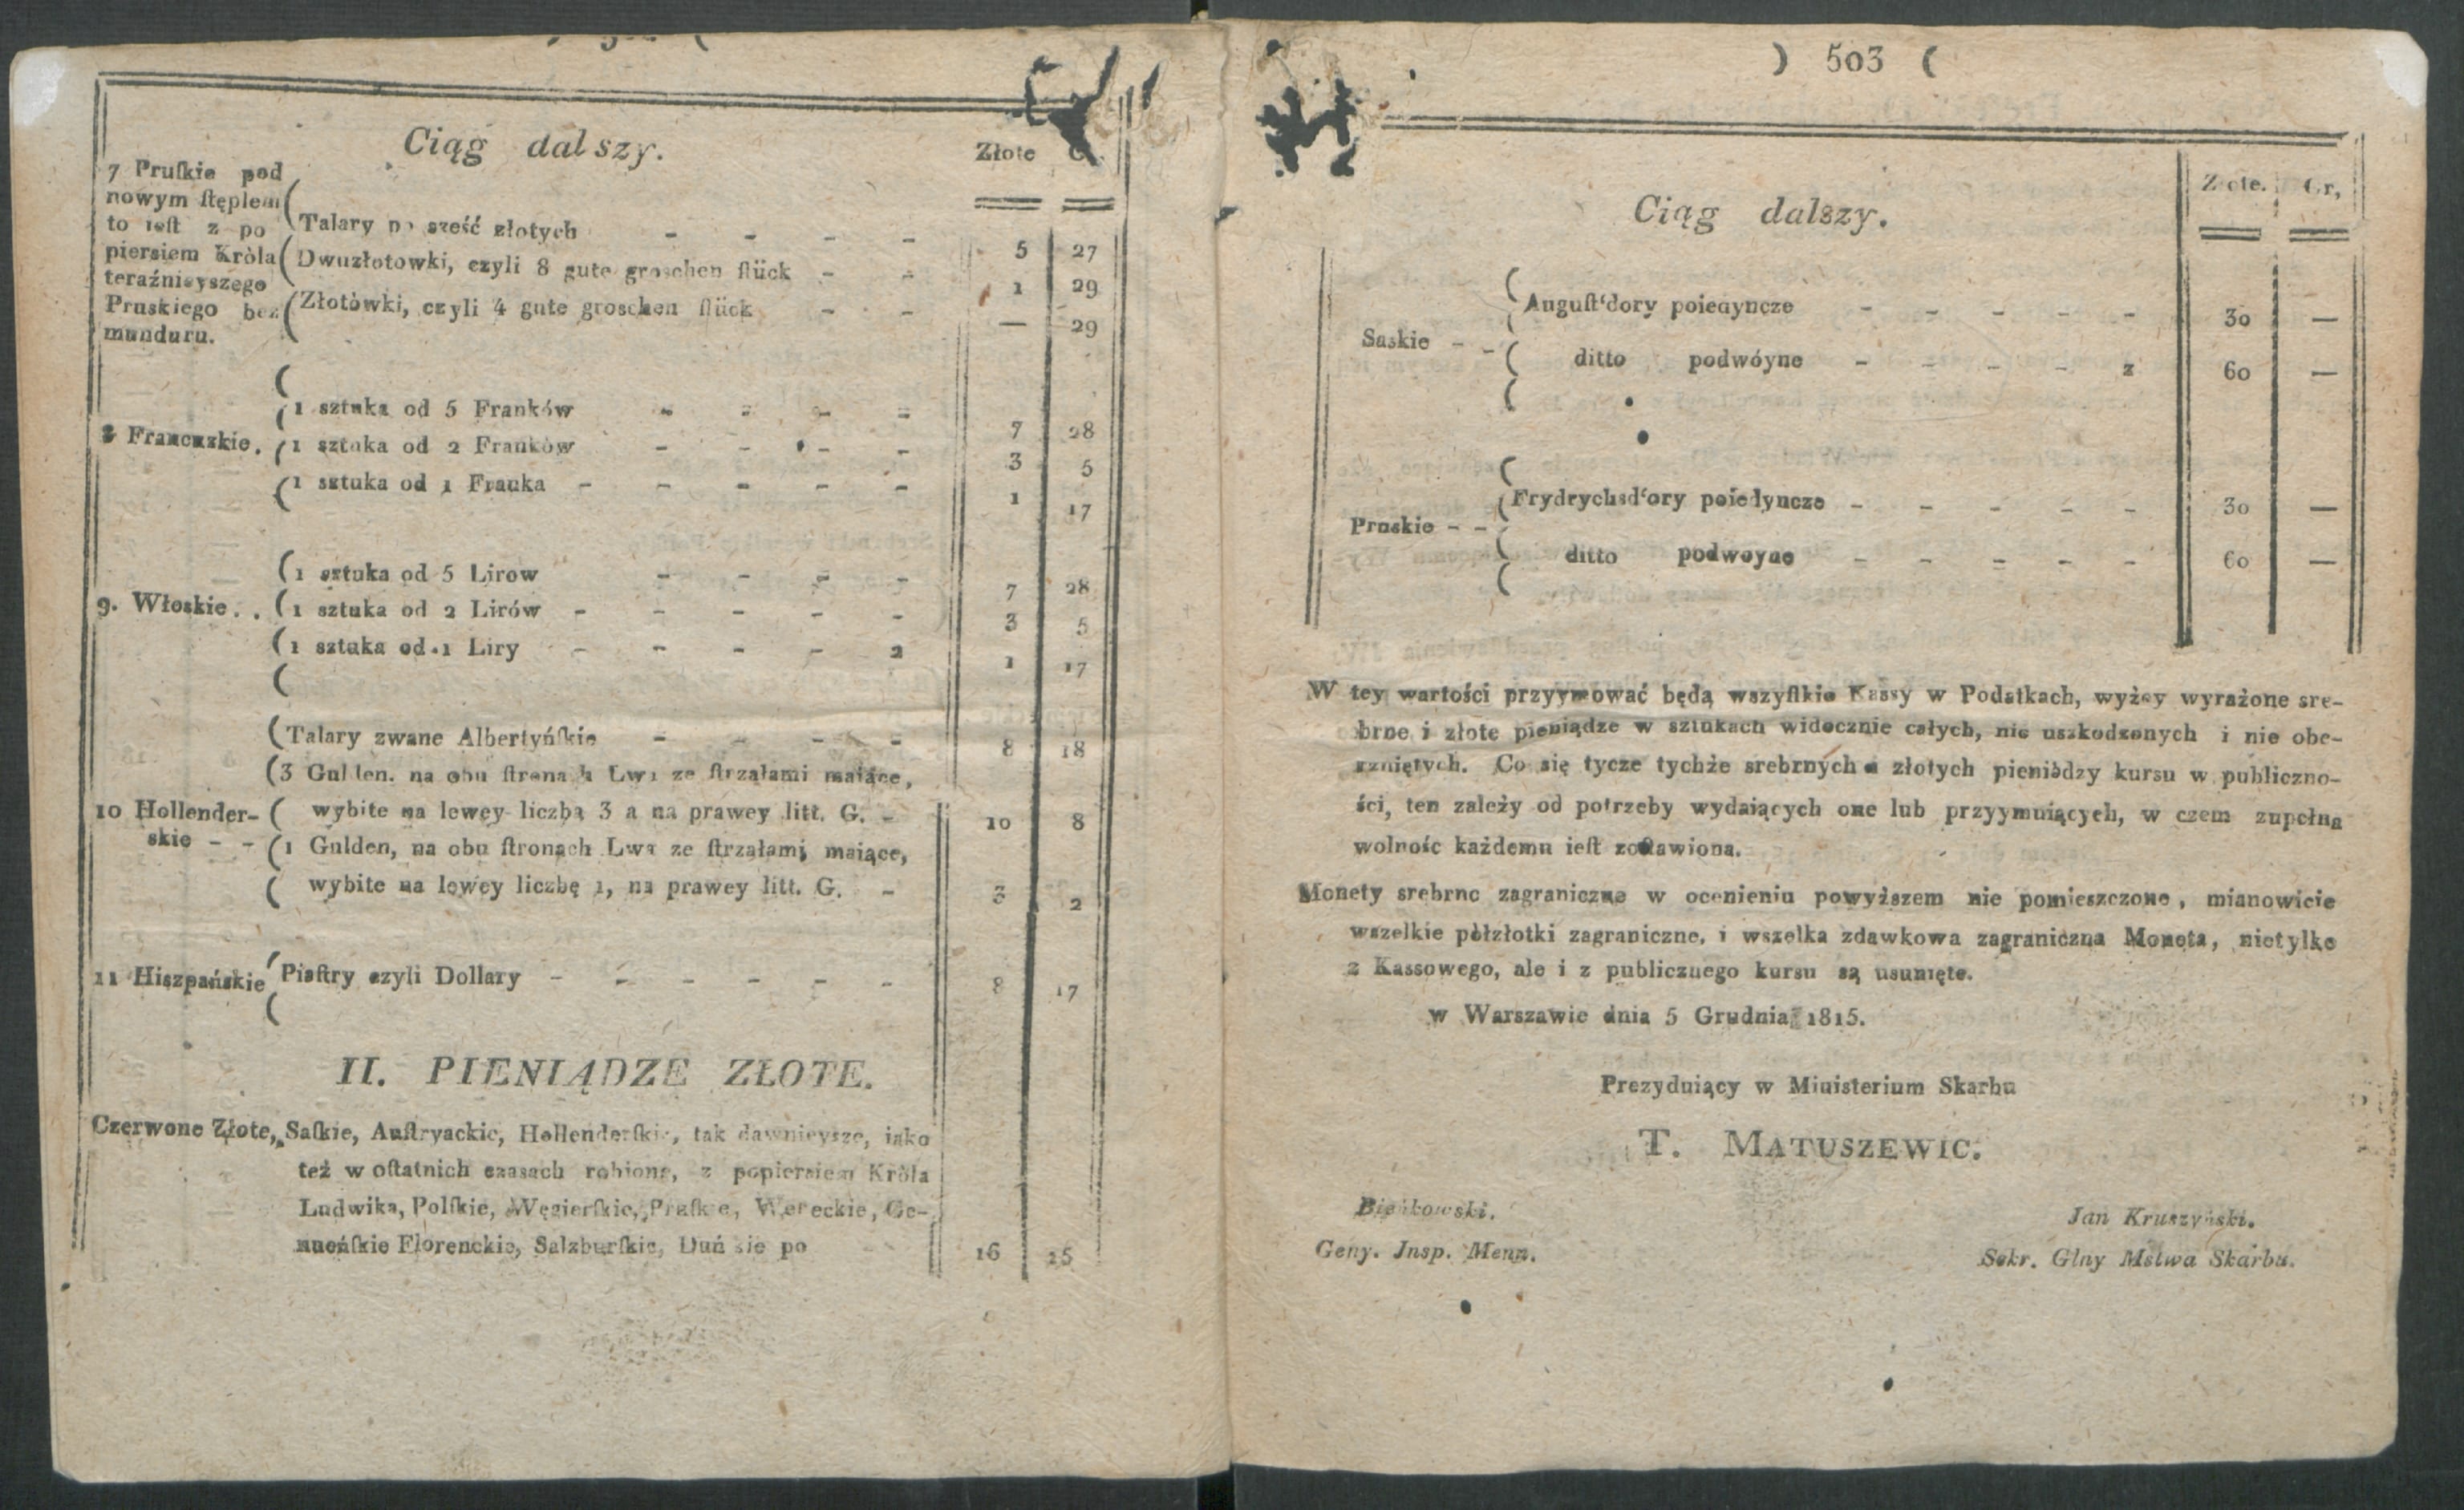 Ciąg dalszy.
Złote
7 Pruſkie pod
nowym ſtęplem
to ieſt z po
piersiem Króla
teraźnieyszego
Pruskiego bez
munduru.
Talary po sześć złotych - - - - 5 27
Dwuzłotowki, czyli 8 gute groschen ſtück - - 1 29
Złotówki, czyli 4 gute groschen ſtück - - — 29
8 Francuzkie.
1 sztuka od 5 Franków - - - - 7 28
1 sztuka od 2 Franków - - - - 3 5
1 sztuka od 1 Franka - - - - - 1 17
9. Włoskie . .
1 sztuka od 5 Lirow - - - - 7 28
1 sztuka od 2 Lirów - - - - - 3 5
1 sztuka od 1 Liry - - - - 2 1 17
10 Hollender-
skie - -
Talary zwane Albertyńſkie - - - - 8 18
3 Gulden. na obu ſtronach Lwa ze ſtrzałami maiące,
wybite na lewey liczbą 3 a na prawey litt. G. - 10 8
1 Gulden, na obu ſtronach Lwa ze ſtrzałami maiące,
wybite na lewey liczbę 1, na prawey litt. G. - 3 2
11 Hiszpańskie Piaſtry czyli Dollary - - - - - 8 17
II. PIENIĄDZE ZŁOTE.
Czerwone Złote, Saſkie, Auſtryackie, Hollenderſkie, tak dawnieysze, iako
też w oſtatnich czasach robione, z popiersiem Króla
Ludwika, Polſkie, Węgierſkie, Pruſkie, Weneckie, Ge-
nueńſkie Florenckie, Salzburſkie, Duńskie po 16 25
) 503 (
Ciąg dalszy.
Złote. Gr,
Saskie - -
Auguſt'dory poiedyncze - - - - - 30 —
ditto podwóyne - - - - z 60 —
Pruskie - -
Frydrychsd'ory poiedyncze - - - - - 30 —
ditto podwoyne - - - - - 60 —
W tey wartości przyymować będą wszyſtkie Kassy w Podatkach, wyżey wyrażone sre-
brne i złote pieniądze w sztukach widocznie całych, nie uszkodzonych i nie obe-
rzniętych. Co się tycze tychże srebrnych i złotych pieniędzy kursu w publiczno-
ści, ten zależy od potrzeby wydaiących one lub przyymuiących, w czem zupełna
wolność każdemu ieſt zoſtawiona.
Monety srebrne zagraniczne w ocenieniu powyższem nie pomieszczone, mianowicie
wszelkie półzłotki zagraniczne, i wszelka zdawkowa zagraniczna Moneta, nietylko
z Kassowego, ale i z publicznego kursu są usunięte.
w Warszawie dnia 5 Grudnia 1815.
Prezyduiący w Ministerium Skarbu
T. MATUSZEWIC.
Bieńkowski.
Geny. Jnsp. Menn.
Jan Kruszyński.
Sekr. Glny Mstwa Skarbu.